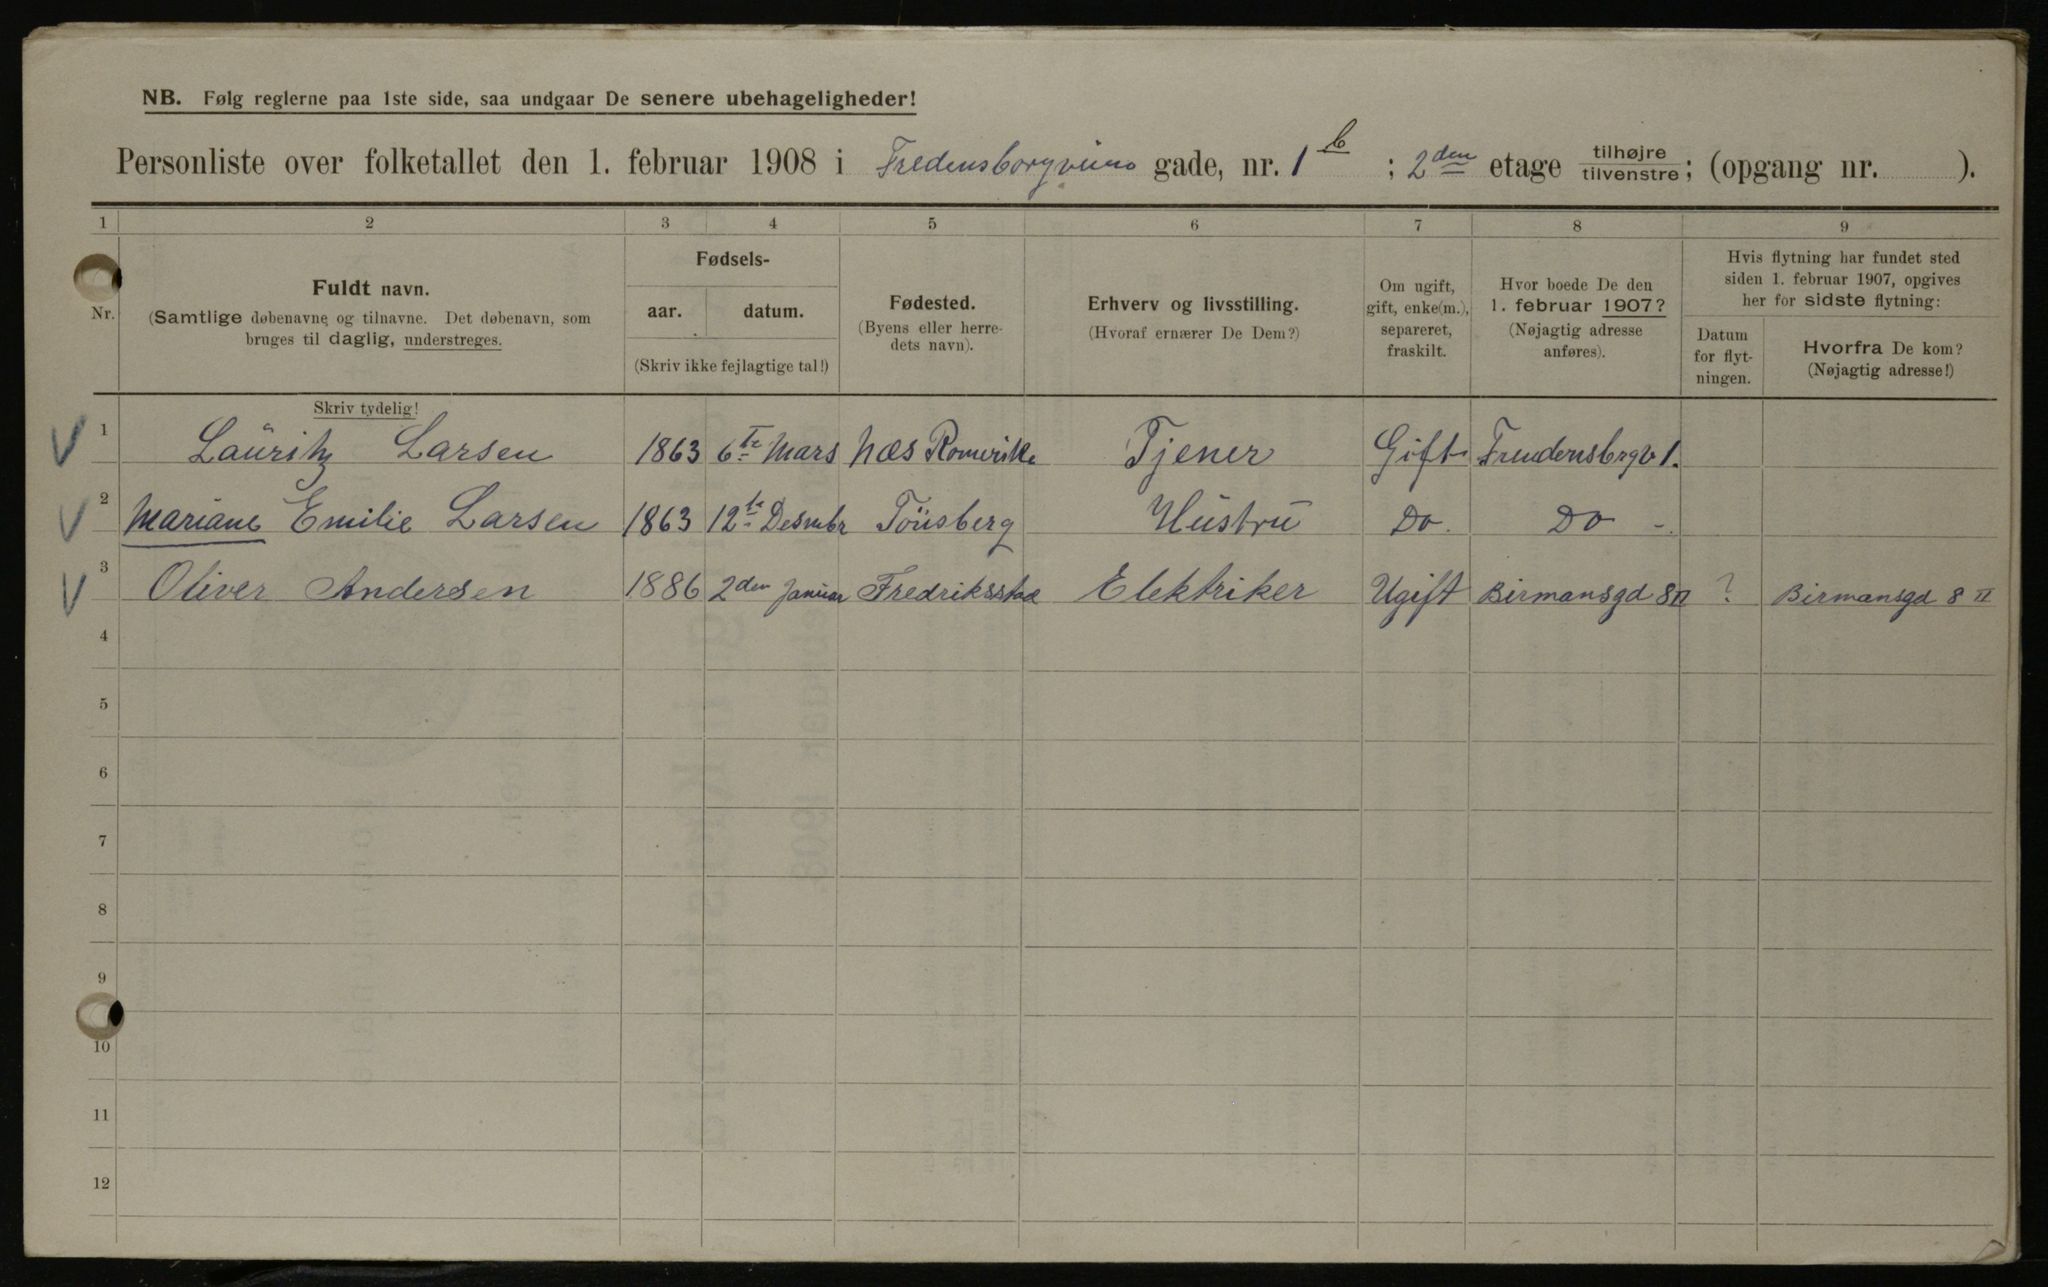 NB. Følg reglerne paa 1ste side, saa undgaar De senere ubehageligheder!
Personliste over folketallet den 1. februar 1908 i Fredensborgveien gade, nr. 1 b ; 2den etage tilhøjre tilvenstre; (opgang nr. ).
1 2 3 4 5 6 7 8 9
Nr.
Fuldt navn.
(Samtlige døbenavne og tilnavne. Det døbenavn, som
bruges til daglig, understreges.
Skriv tydelig!
Fødsels-
aar. datum.
(Skriv ikke fejlagtige tal!)
Fødested.
(Byens eller herre-
dets navn).
Erhverv og livsstilling.
(Hvoraf ernærer De Dem?)
Om ugift,
gift, enke(m.),
separeret,
fraskilt.
Hvor boede De den
1. februar 1907?
(Nøjagtig adresse
anføres).
Hvis flytning har fundet sted
siden 1. februar 1907, opgives
her for sidste flytning:
Datum
for flyt-
ningen.
Hvorfra De kom?
(Nøjagtig adresse!)
1 Lauritz Larsen 1863 6te Mars Næs Romerike Tjener Gift Freudensbrgv 1.
2 Mariane Emilie Larsen 1863 12te Desmbr Tönsberg Hüstrü Do. Do -.
3 Oliver Andersen 1886 2den Januar Fredriksstad Elektriker Ugift Birmansgd 8 II ? Birmansgd 8 II
4
5
6
7
8
9
10
11
12